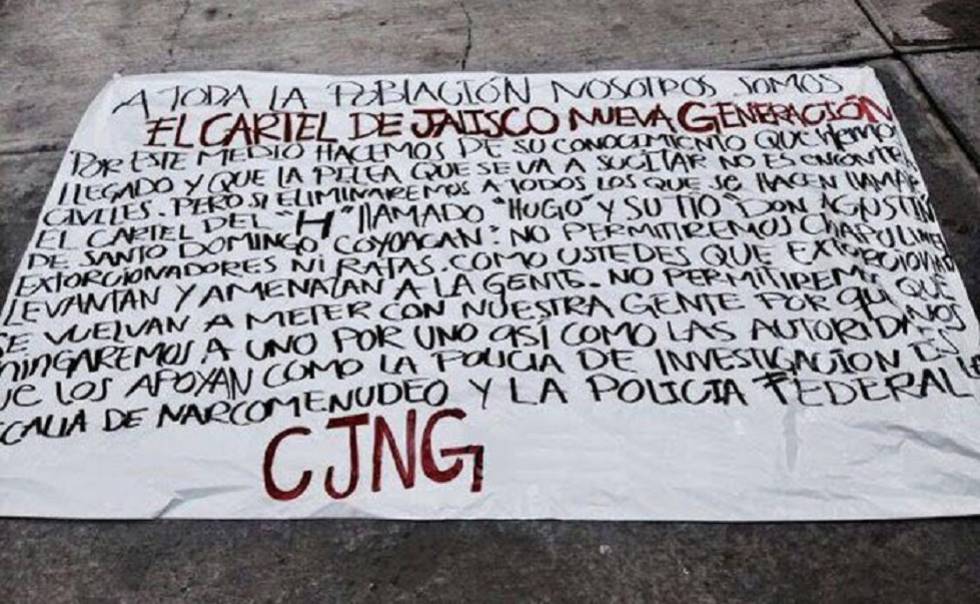 A TODA LA POBLACIÓN NOSOTROS SOMOS
EL CARTEL DE JALISCO NUEVA GENERACIÓN
POR ESTE MEDIO HACEMOS DE SU CONOCIMIENTO QUE HEMOS
LLEGADO Y QUE LA PELEA QUE SE VA A SUCITAR NO ES
CIVILES. PERO SI ELIMINAREMOS A TODOS LOS QUE SE HACEN LLAMAR
EL CARTEL DEL "H" LLAMADO "HUGO" Y SU TIO "DON AGUSTIN
DE SANTO DOMINGO COYOACAN". NO PERMITIREMOS
EXTORCIONADORES NI RATAS. COMO USTEDES QUE
LEVANTAN Y AMENAZAN A LA GENTE. NO PERMITIREMOS QUE
SE VUELVAN A METER CON NUESTRA GENTE POR QUE NOS
A UNO POR UNO ASÍ COMO LAS
QUE LOS APOYAN COMO LA POLICIA DE INVESTIGACION
DE NARCOMENUDEO Y LA POLICIA FEDERAL
CJNG